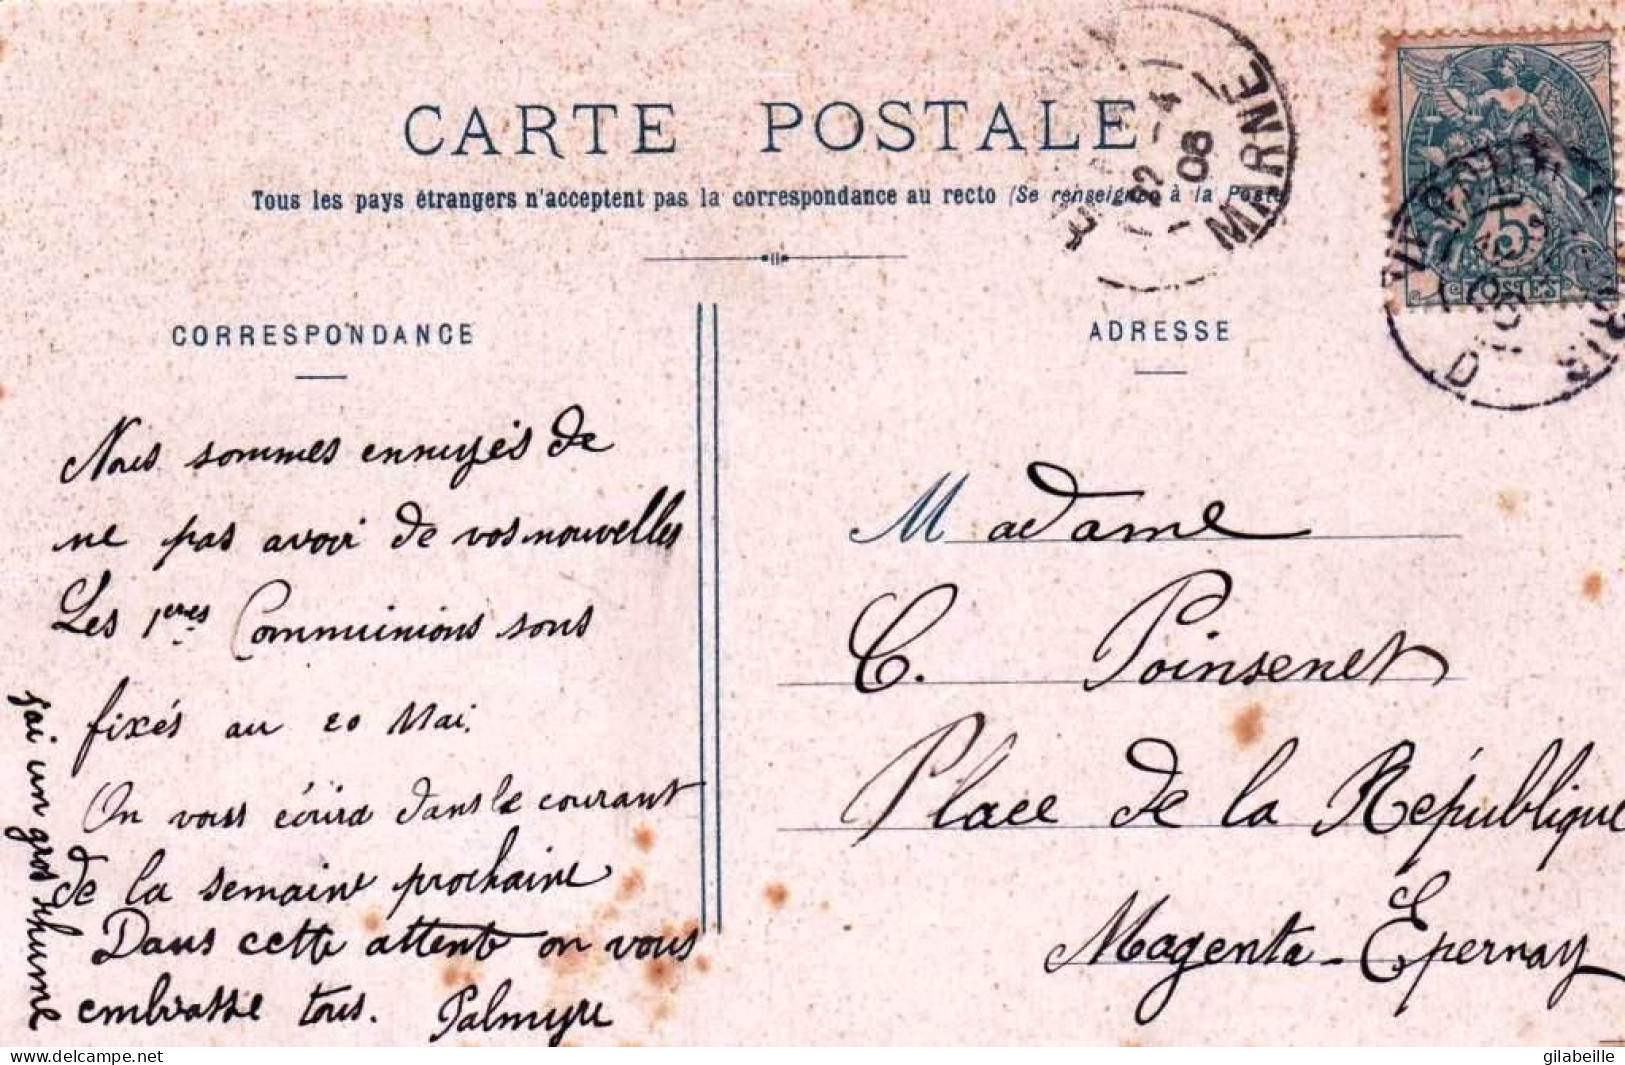 CARTE POSTALE
Tous les pays étrangers n'acceptent pas la correspondance au recto (Se renseigner à la Poste
22 - 4
08
MARNE
5
POSTES
CORRESPONDANCE
ADRESSE
Nous sommes ennuyés de
ne pas avoir de vos nouvelles
Les 1eres Communions sont
fixés au 20 Mai.
On vous écrira dans le courant
de la semaine prochaine
Dans cette attente on vous
embrasse tous. Palmyre
j'ai un gros rhume
Madame
C. Poinsenet
Place de la République
Magenta - Epernay
https://www.delcampe.net
gilabeille